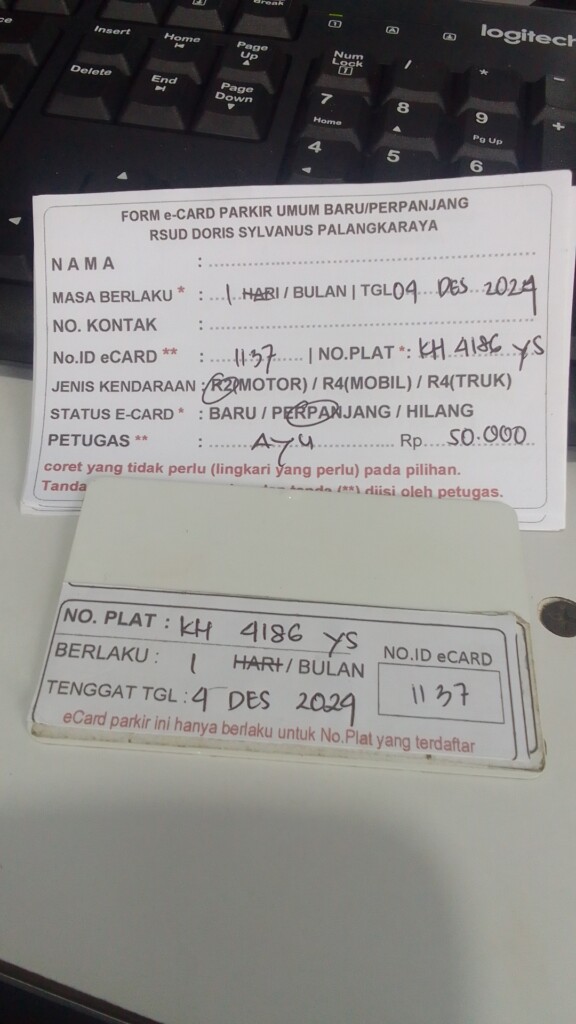 Break
Insert
Home
Page Up
Delete
End
Page Down
Num Lock
/
*
-
7
Home
8
9
Pg Up
+
4
5
6
logitech
FORM e-CARD PARKIR UMUM BARU/PERPANJANG
RSUD DORIS SYLVANUS PALANGKARAYA
NAMA :
MASA BERLAKU * : 1 HARI / BULAN | TGL 04 DES 2024
NO. KONTAK :
No.ID eCARD ** : 1137 | NO.PLAT *: KH 4186 YS
JENIS KENDARAAN : R2(MOTOR) / R4(MOBIL) / R4(TRUK)
STATUS E-CARD * : BARU / PERPANJANG / HILANG
PETUGAS ** : AYU Rp. 50.000
coret yang tidak perlu (lingkari yang perlu) pada pilihan.
Tanda (**) diisi oleh petugas.
NO. PLAT : KH 4186 YS
BERLAKU : 1 HARI / BULAN
NO.ID eCARD
TENGGAT TGL : 4 DES 2024
1137
eCard parkir ini hanya berlaku untuk No.Plat yang terdaftar